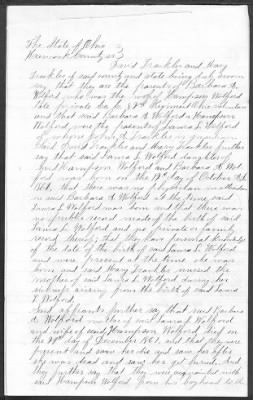 The State of Ohio
Hancock County ss
David Franks and Mary
Franks of said county and state being duly sworn
say that they are the parents of Barbara A.
Wolford who was the wife of Hampson Wolford
late private Co. 
Regiment Ohio Volunteers
and that said Barbara A. Wolford & Hampson
Wolford were the parents of Laura L. Wolford
of whom John is guardian
Said David and Mary further
say that said Laura L. Wolford daughter
of said Hampson Wolford and Barbara A. Wol-
ford was born on the day of October A.D.
1861, that there was no physician in attendance
on said Barbara A. Wolford at the time said
Laura L. Wolford was born and that there was
no public record made of the birth of said
Laura L. Wolford and no private or family
record thereof, that they have personal knowledge
of the date of the birth of said Laura L. Wolford
and were present at the time she was
born and said Mary nursed the
mother of said Laura L. Wolford during her
sickness arising from the birth of said Laura
L. Wolford.
Said affiants further say that said Barbara
A. Wolford mother of said Laura L. Wolford
and wife of said Hampson Wolford died on
the day of December 1861, and that they were
present and saw her die and saw her after
she was dead and saw her buried. And
they further say that they were acquainted with
said Hampson Wolford from his boyhood to the